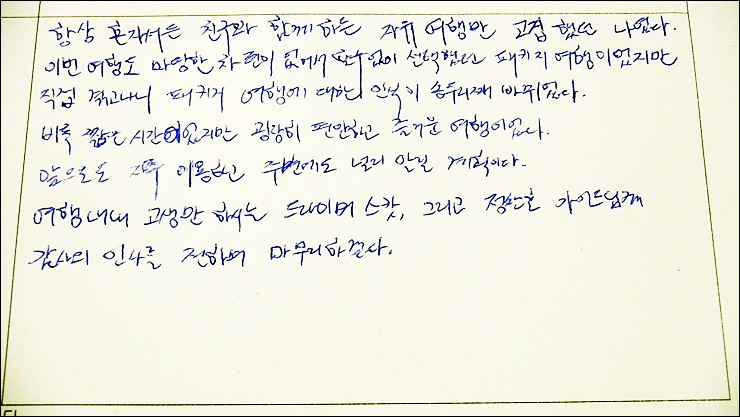 항상 혼자서든 친구와 함께 하는 자유 여행만 고집했던 나였다.
이번 여행도 마땅한 차편이 없어서 할수없이 선택했던 패키지 여행이었지만
직접 겪고나니 패키지 여행에 대한 인식이 송두리째 바뀌었다.
비록 짧은 시간이었지만 굉장히 편안하고 즐거운 여행이었다.
앞으로도 자주 이용하고 주변에도 널리 알릴 계획이다.
여행내내 고생만 하시는 드라이버 스캇, 그리고 가이드님께
감사의 인사를 전하며 마무리하겠다.